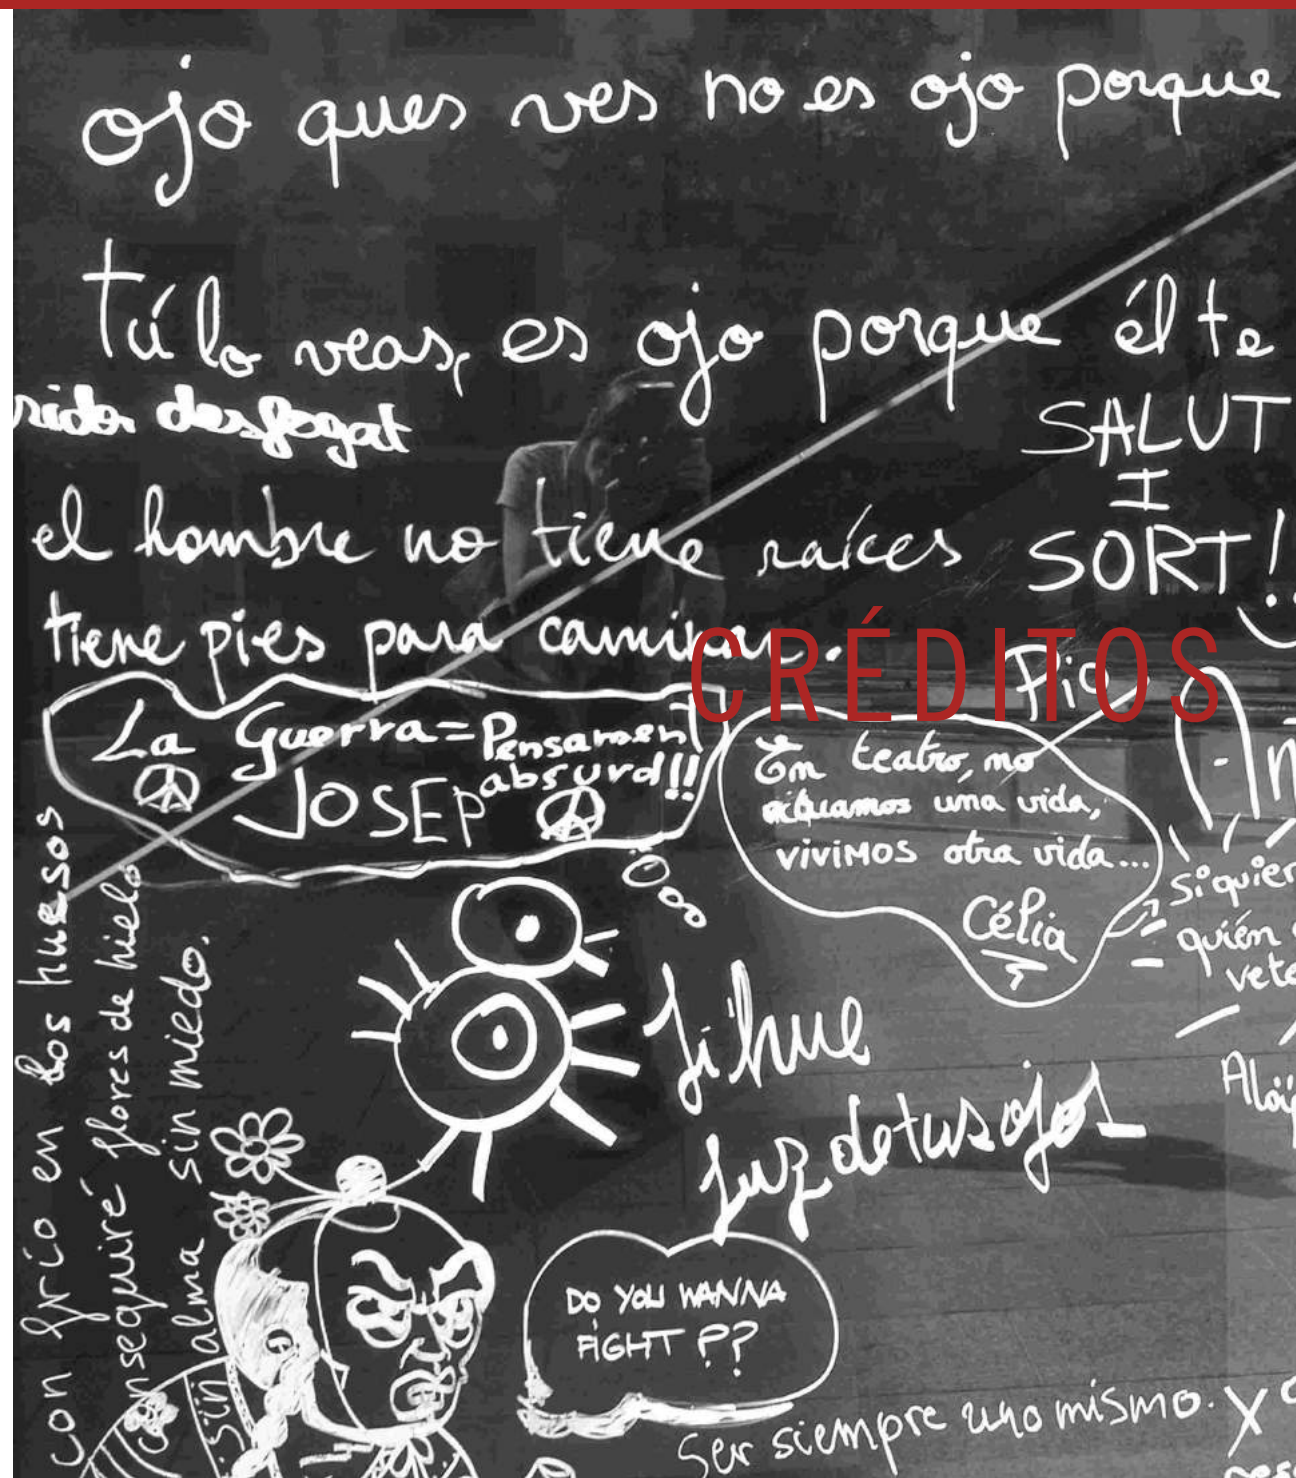 ojo ques ves no es ojo porque
tú lo veas, es ojo porque él te
desfogat
SALUT
I
SORT!
el hombre no tiene raíces
tiene pies para caminar.
CRÉDITOS
Pio
La Guerra = Pensament
absurd!!
JOSEP
Em teatro, no
una vida,
vivimos otra vida...
Célia
si quier
quién
vete
luz de tus ojos
con frío en los huesos
nseguiré flores de hielo
sin alma sin miedo.
DO YOU WANNA
FIGHT ??
Ser siempre uno mismo.